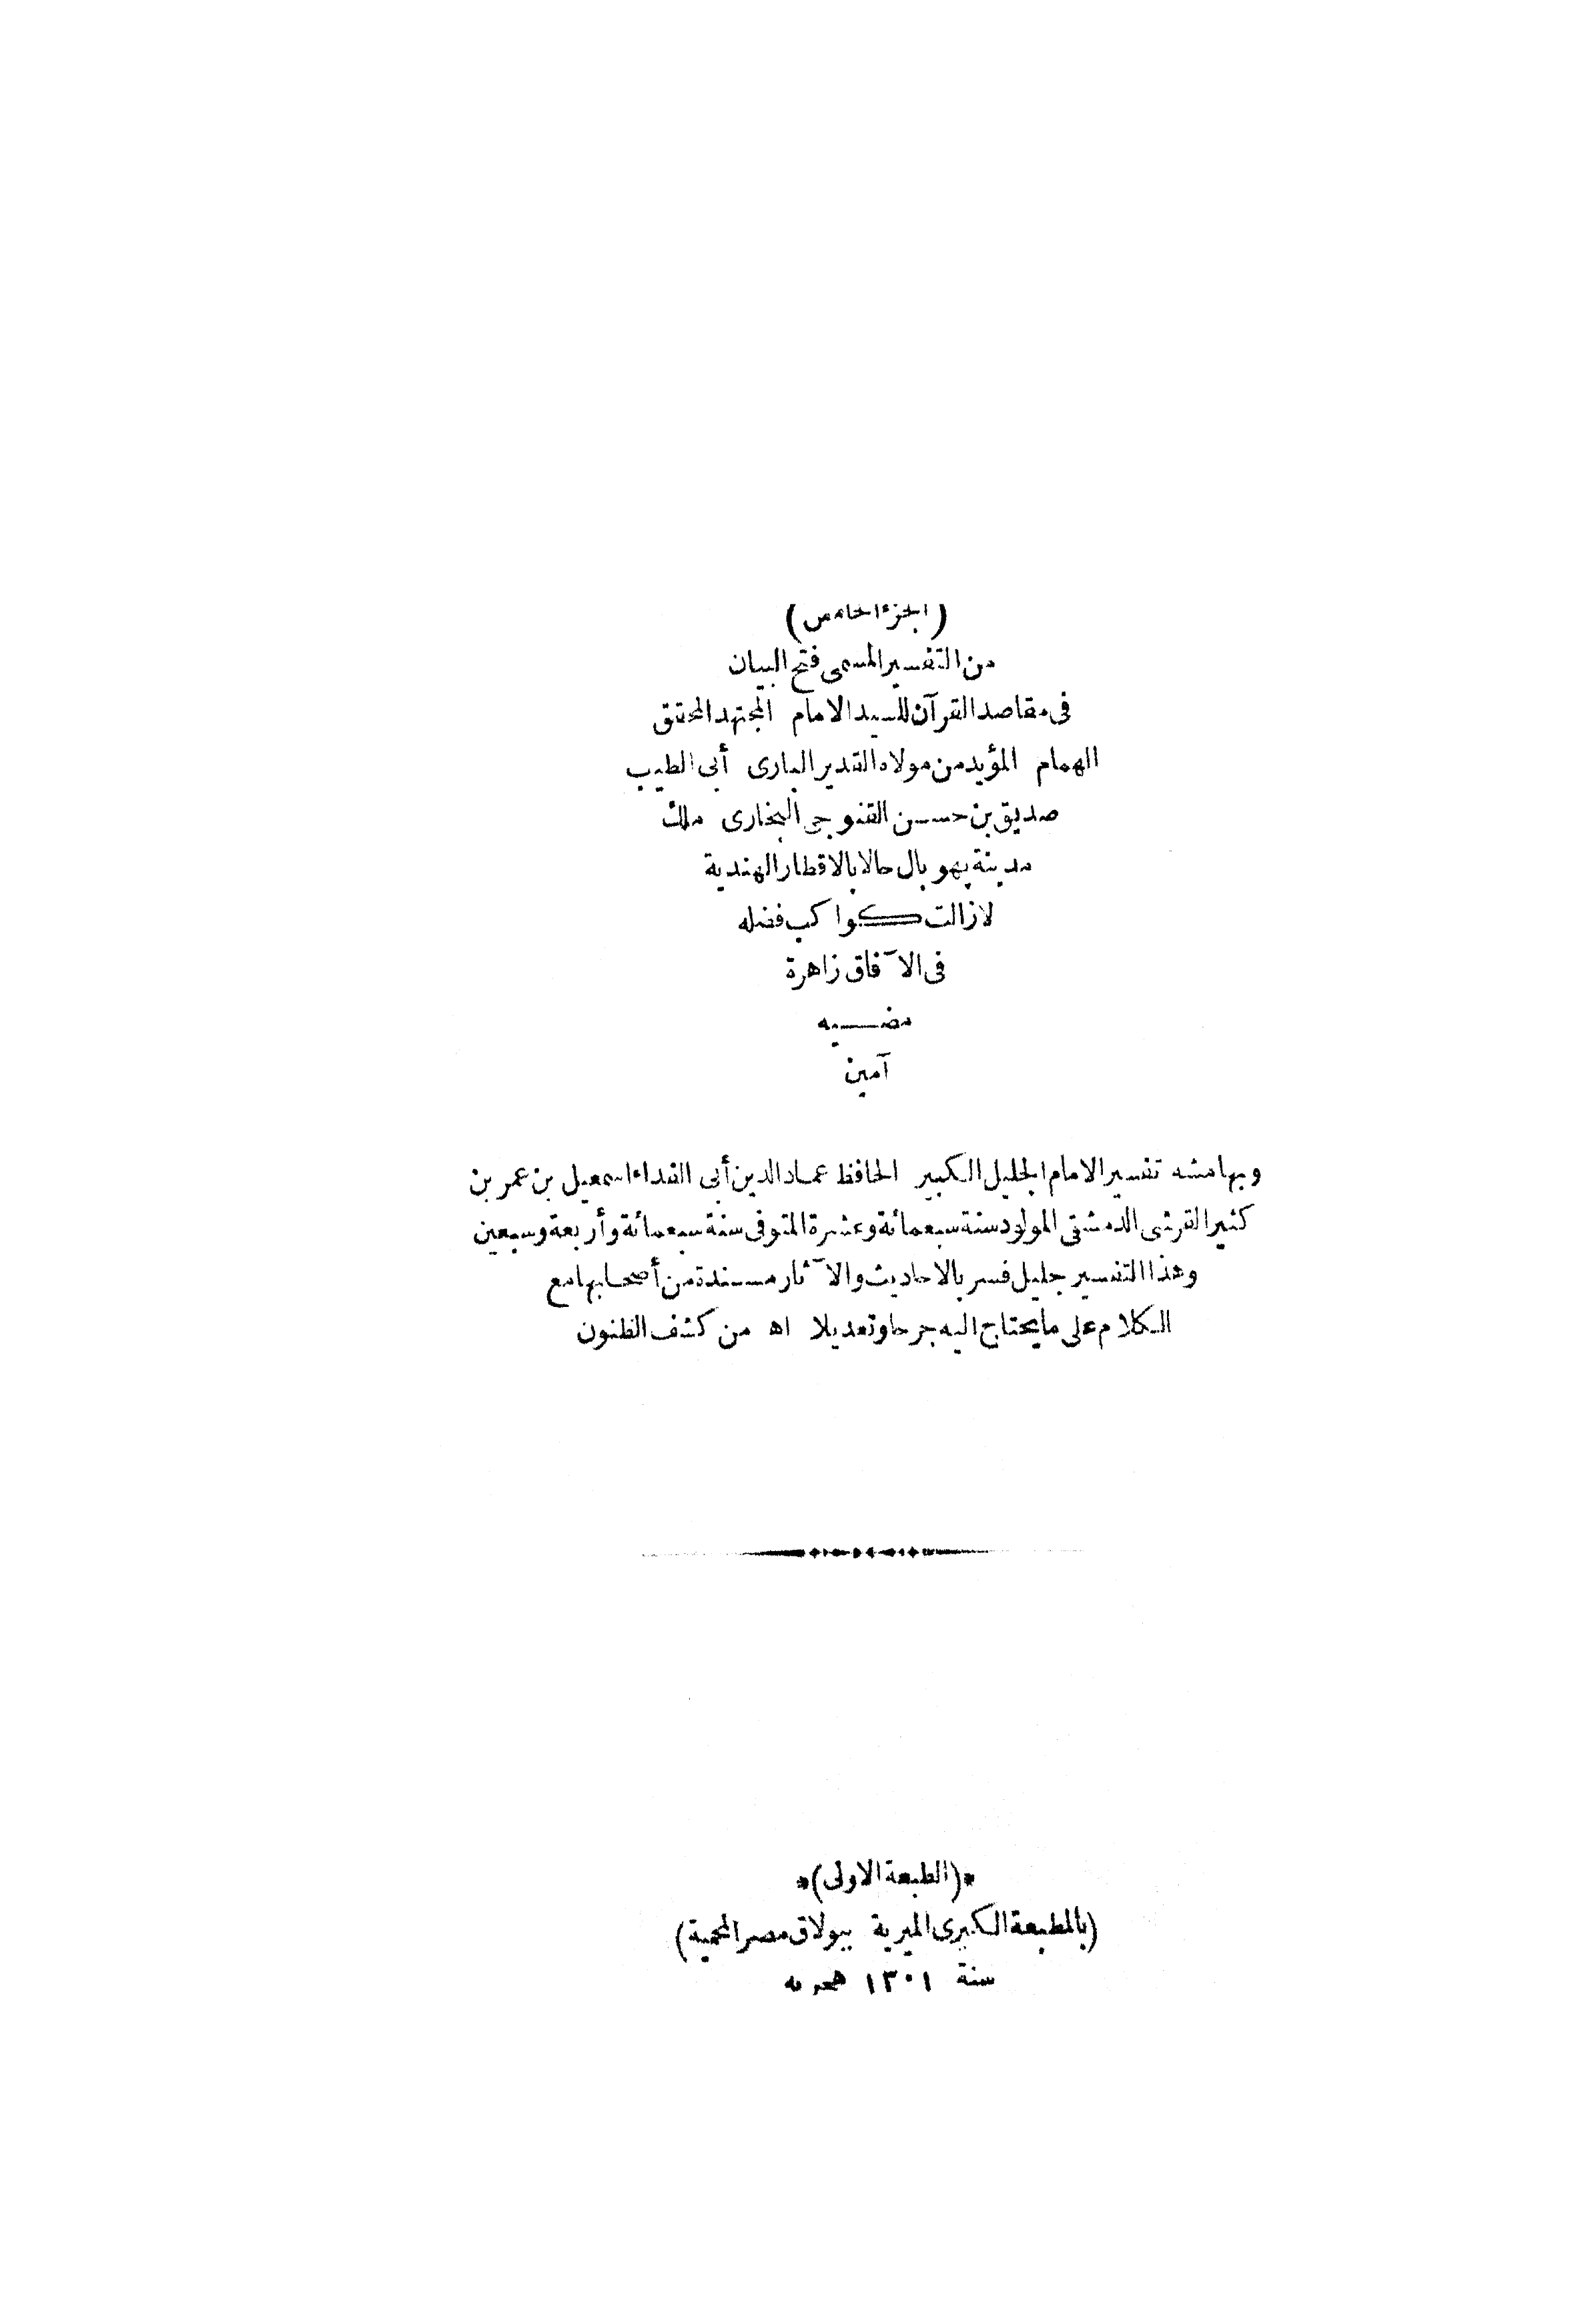 (الجزء الخامس)
من التفسير المسمى فتح البيان
فى مقاصد القرآن للسيد الامام المجتهد المحقق
الهمام المؤيد من مولاه القدير البارى أبى الطيب
صديق بن حسن القنوجى البخارى ملك
مدينة بهوبال حالا بالاقطار الهندية
لازالت كواكب فضله
فى الآفاق زاهرة
مضيه
آمين
وبهامشه تفسير الامام الجليل الكبير الحافظ عماد الدين أبى الفداء اسمعيل بن عمر بن
كثير القرشى الدمشقى المولود سنة سبعمائة وعشرة المتوفى سنة سبعمائة وأربعة وسبعين
وهذا التفسير جليل فسر بالاحاديث والآثار مسندة من أصحابها مع
الكلام على ما يحتاج اليه جرحا وتعديلا اه من كشف الظنون
*(الطبعة الاولى)*
(بالمطبعة الكبرى الميرية ببولاق مصر المحمية)
سنة ١٣٠١ هجريه